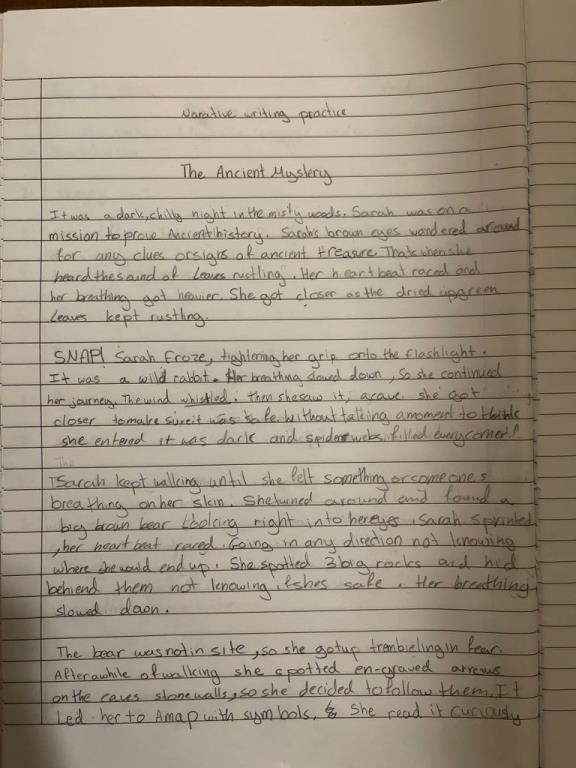 Narative writing practice
The Ancient Mystery
It was a dark, chilly night in the misty woods. Sarah was on a
mission to prove Ancient history. Sarahs brown eyes wondered around
for any clues or signs of ancient treasure. Thats when she
heard the sound of leaves rustling. Her heart beat raced and
her breathing got heavier. She got closer as the dried up green
leaves kept rustling.
SNAP! Sarah froze, tightening her grip onto the flashlight.
It was a wild rabbit. Her breathing slowed down, So she continued
her journey. The wind whistled. then she saw it, a cave. she got
closer to make sure it was safe. Without taking a moment to think
she entered it was dark and spider webs filled every corner!
Sarah kept walking until she felt something or someones
breathing on her skin. She turned around and found a
big brown bear looking right into her eyes. Sarah sprinted
,her heart beat raced. Going in any direction not knowing
where she would end up. She spotted 3 big rocks and hid
behiend them not knowing if shes safe. Her breathing
slowed down.
The bear was not in site, so she got up trembieling in fear.
After awhile of walking she spotted en-graved arrows
on the caves stone walls, so she decided to follow them. It
Led her to A map with symbols, She read it curiously